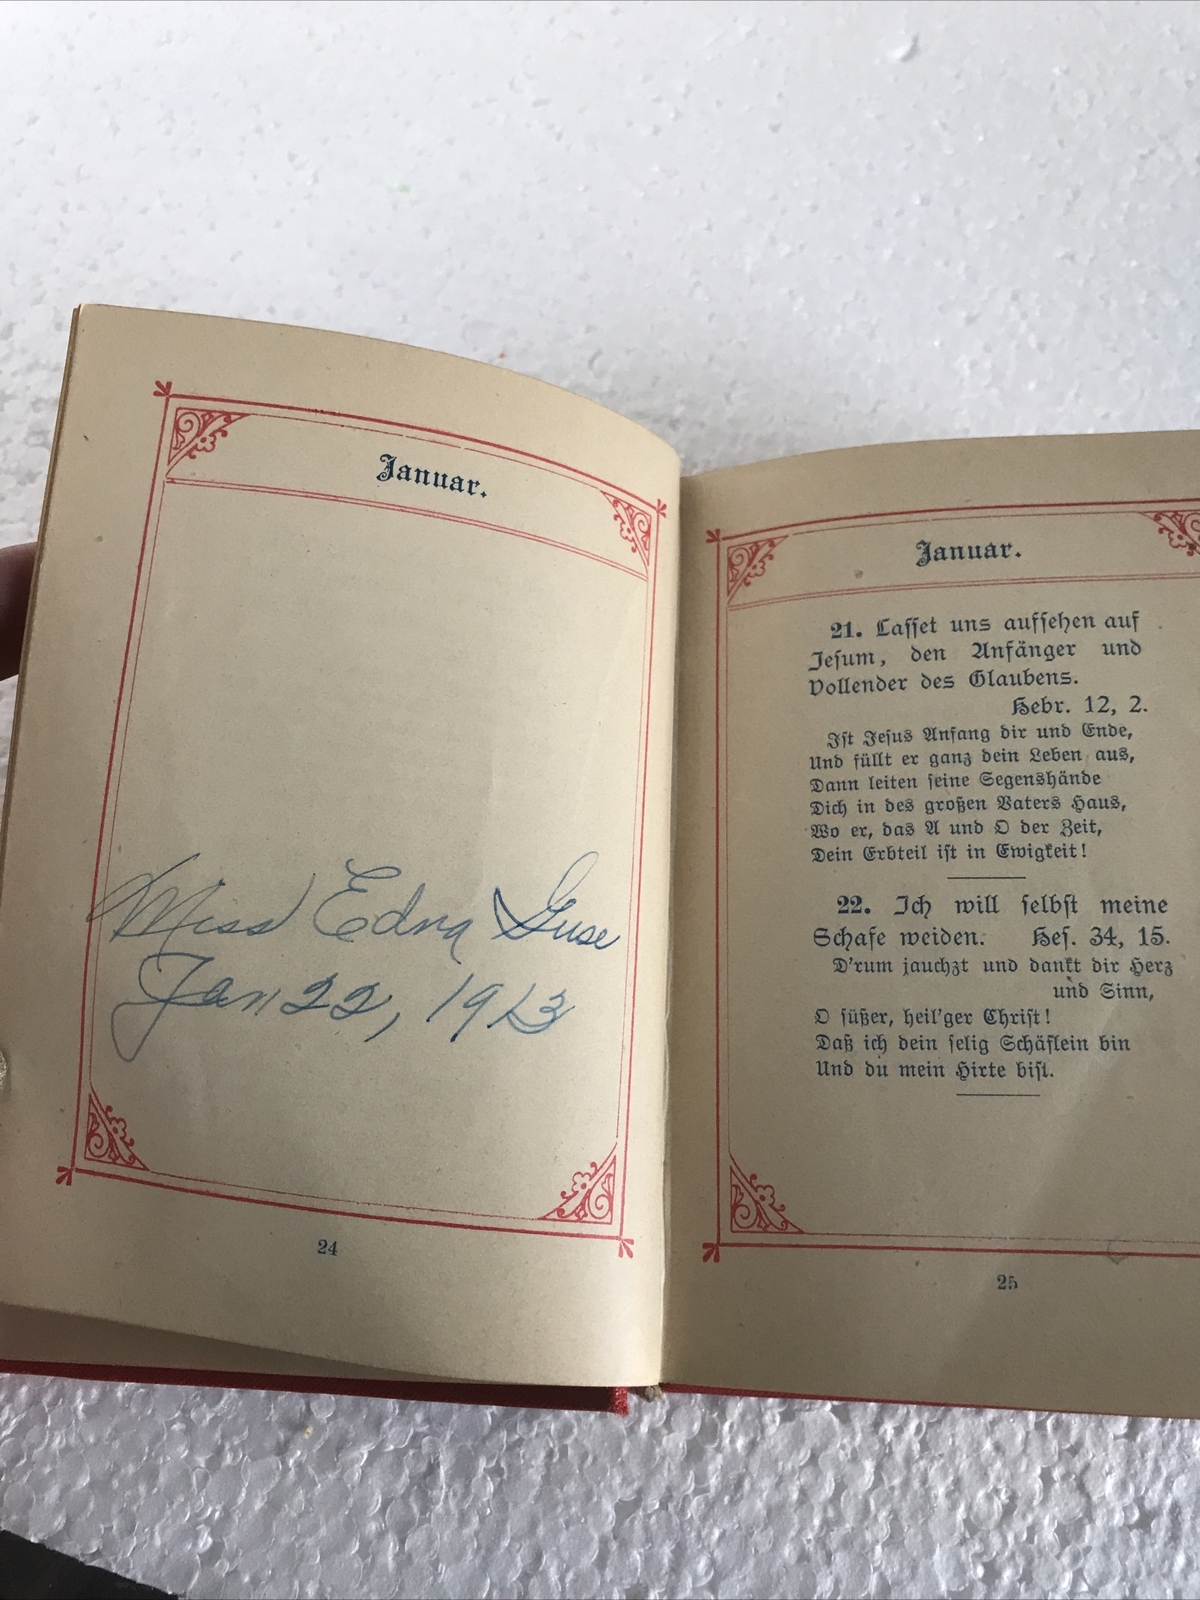 Januar.
Miss Edna Guse
Jan 22, 1913
24
Januar.
21. Lasset uns aufsehen auf
Jesum, den Anfänger und
Vollender des Glaubens.
Hebr. 12, 2.
Ist Jesus Anfang dir und Ende,
Und füllt er ganz dein Leben aus,
Dann leiten seine Segenshände
Dich in des großen Vaters Haus,
Wo er, das A und O der Zeit,
Dein Erbteil ist in Ewigkeit!
22. Ich will selbst meine
Schafe weiden. Hes. 34, 15.
D'rum jauchzt und dankt dir Herz
und Sinn,
O süßer, heil'ger Christ!
Daß ich dein selig Schäflein bin
Und du mein Hirte bist.
25